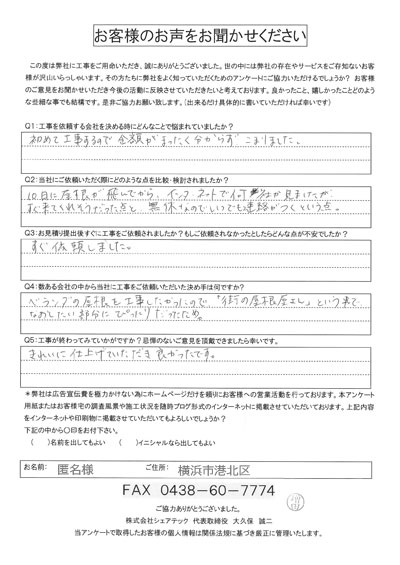 お客様のお声をお聞かせください
この度は弊社に工事をご用命いただき、誠にありがとうございました。世の中には弊社の存在やサービスをご存知ないお客
様が沢山いらっしゃいます。その方たちに弊社をよく知っていただくためのアンケートにご協力いただけるでしょうか？ お客様
のご意見をお聞かせいただき今後の活動に反映させていただきたいと考えております。良かったこと、嬉しかったことどのよう
な些細な事でも結構です。是非ご協力お願い致します。（出来るだけ具体的に書いていただければ幸いです）
Q1：工事を依頼する会社を決める時にどんなことで悩まれていましたか？
初めて工事するので金額がまったく分からず こまりました。
Q2：当社にご依頼いただく際にどのような点を比較・検討されましたか？
10日に屋根が飛んでから、インターネットで何社か見ましたが、
すぐ来てくれそうだった点と、無休なのでいつでも連絡がつくという点。
Q3：お見積り提出後すぐに工事をご依頼されましたか？もしご依頼されなかったとしたらどんな点が不安でしたか？
すぐ依頼しました。
Q4：数ある会社の中から当社に工事をご依頼いただいた決め手は何ですか？
ベランダの屋根を工事したかったので「街の屋根屋さん」という事で
なおしたい部分にぴったりだったため。
Q5：工事が終わってみていかがですか？忌憚のないご意見を頂戴できましたら幸いです。
きれいに仕上げていただき良かったです。
＊弊社は広告宣伝費を極力かけない為にホームページだけを頼りにお客様への営業活動を行っております。本アンケート
用紙またはお客様宅の調査風景や施工状況を随時ブログ形式のインターネットに掲載させていただいております。上記内容
をインターネットや印刷物に掲載させていただいてもよろしいでしょうか？
下記の中から〇印をお付下さい。
（ ）名前を出してもよい （ ）イニシャルなら出してもよい
お名前： 匿名様 ご住所： 横浜市港北区
FAX 0438-60-7774
ご協力ありがとうございました。
株式会社シェアテック 代表取締役 大久保 誠二
当アンケートで取得したお客様の個人情報は関係法規に基づき厳正に管理いたします。